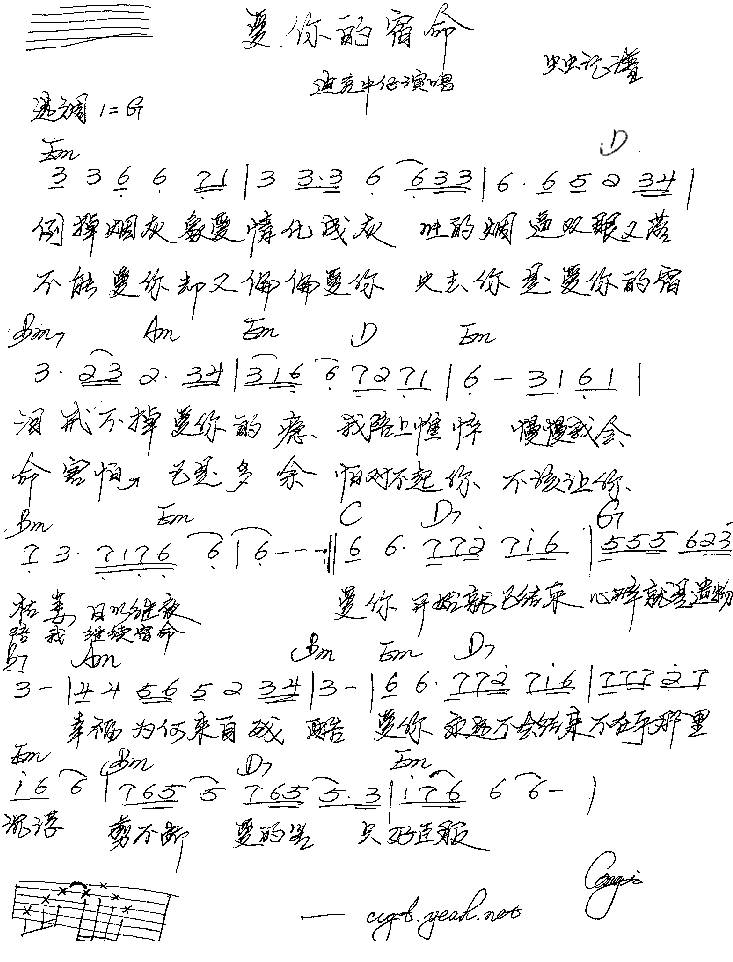 爱你的宿命
迪克牛仔演唱
虫虫记谱
选调 1=G
Em D
3 3 6 6 71 | 3 3·3 6 6 33 | 6· 6 5 2 34 |
倒掉烟灰象爱情化成灰 吐的烟 双眼又落
不能爱你却又偏偏爱你 失去你是爱你的宿
Bm7 Am Em D Em
3· 23 2· 34 | 316 6 7271 | 6 - 31 61 |
泪 戒不掉爱你的瘾、我陪上憔悴 慢慢我会
命 害怕 已是多余 怕对不起你 不该让你、
Bm Em C D7 G7
7 3· 7176 6 | 6 - - - :|| 6 6· 772 716 | 555 623
枯萎 日以继夜 爱你 开始就已结束 心碎就是遗物
陪我 继续宿命
B7 Am Bm Em D7
3 - | 44 56 5 2 34 | 3 - | 6 6· 772 716 | 777 27
幸福为何来自残酷 爱你 永远不会结束不在乎那里
Em Bm D7 Em
i6 6 | 765 5 765 5·3 | i76 6 6 - |
沉浮 剪不断 爱的 只好臣服